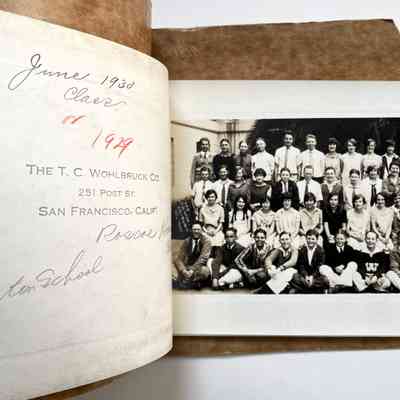 June 1930
Class
or
1929
THE T. C. WOHLBRUCK CO
251 POST ST.
SAN FRANCISCO, CALIF
Roscoe
School